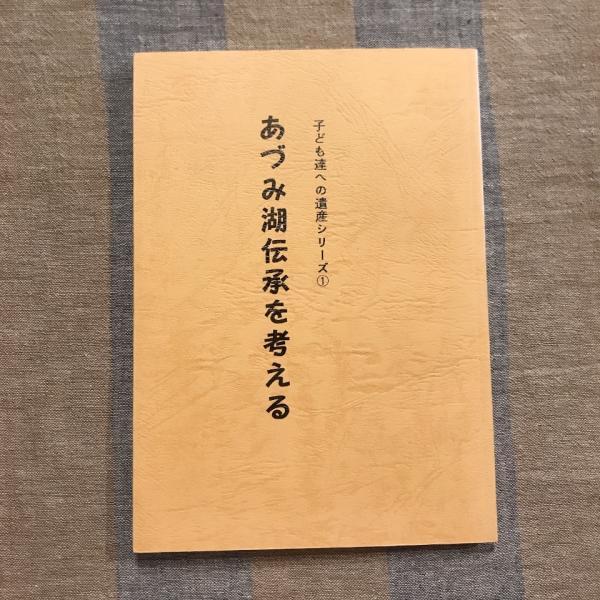 子ども達への遺産シリーズ①
あづみ湖伝承を考える